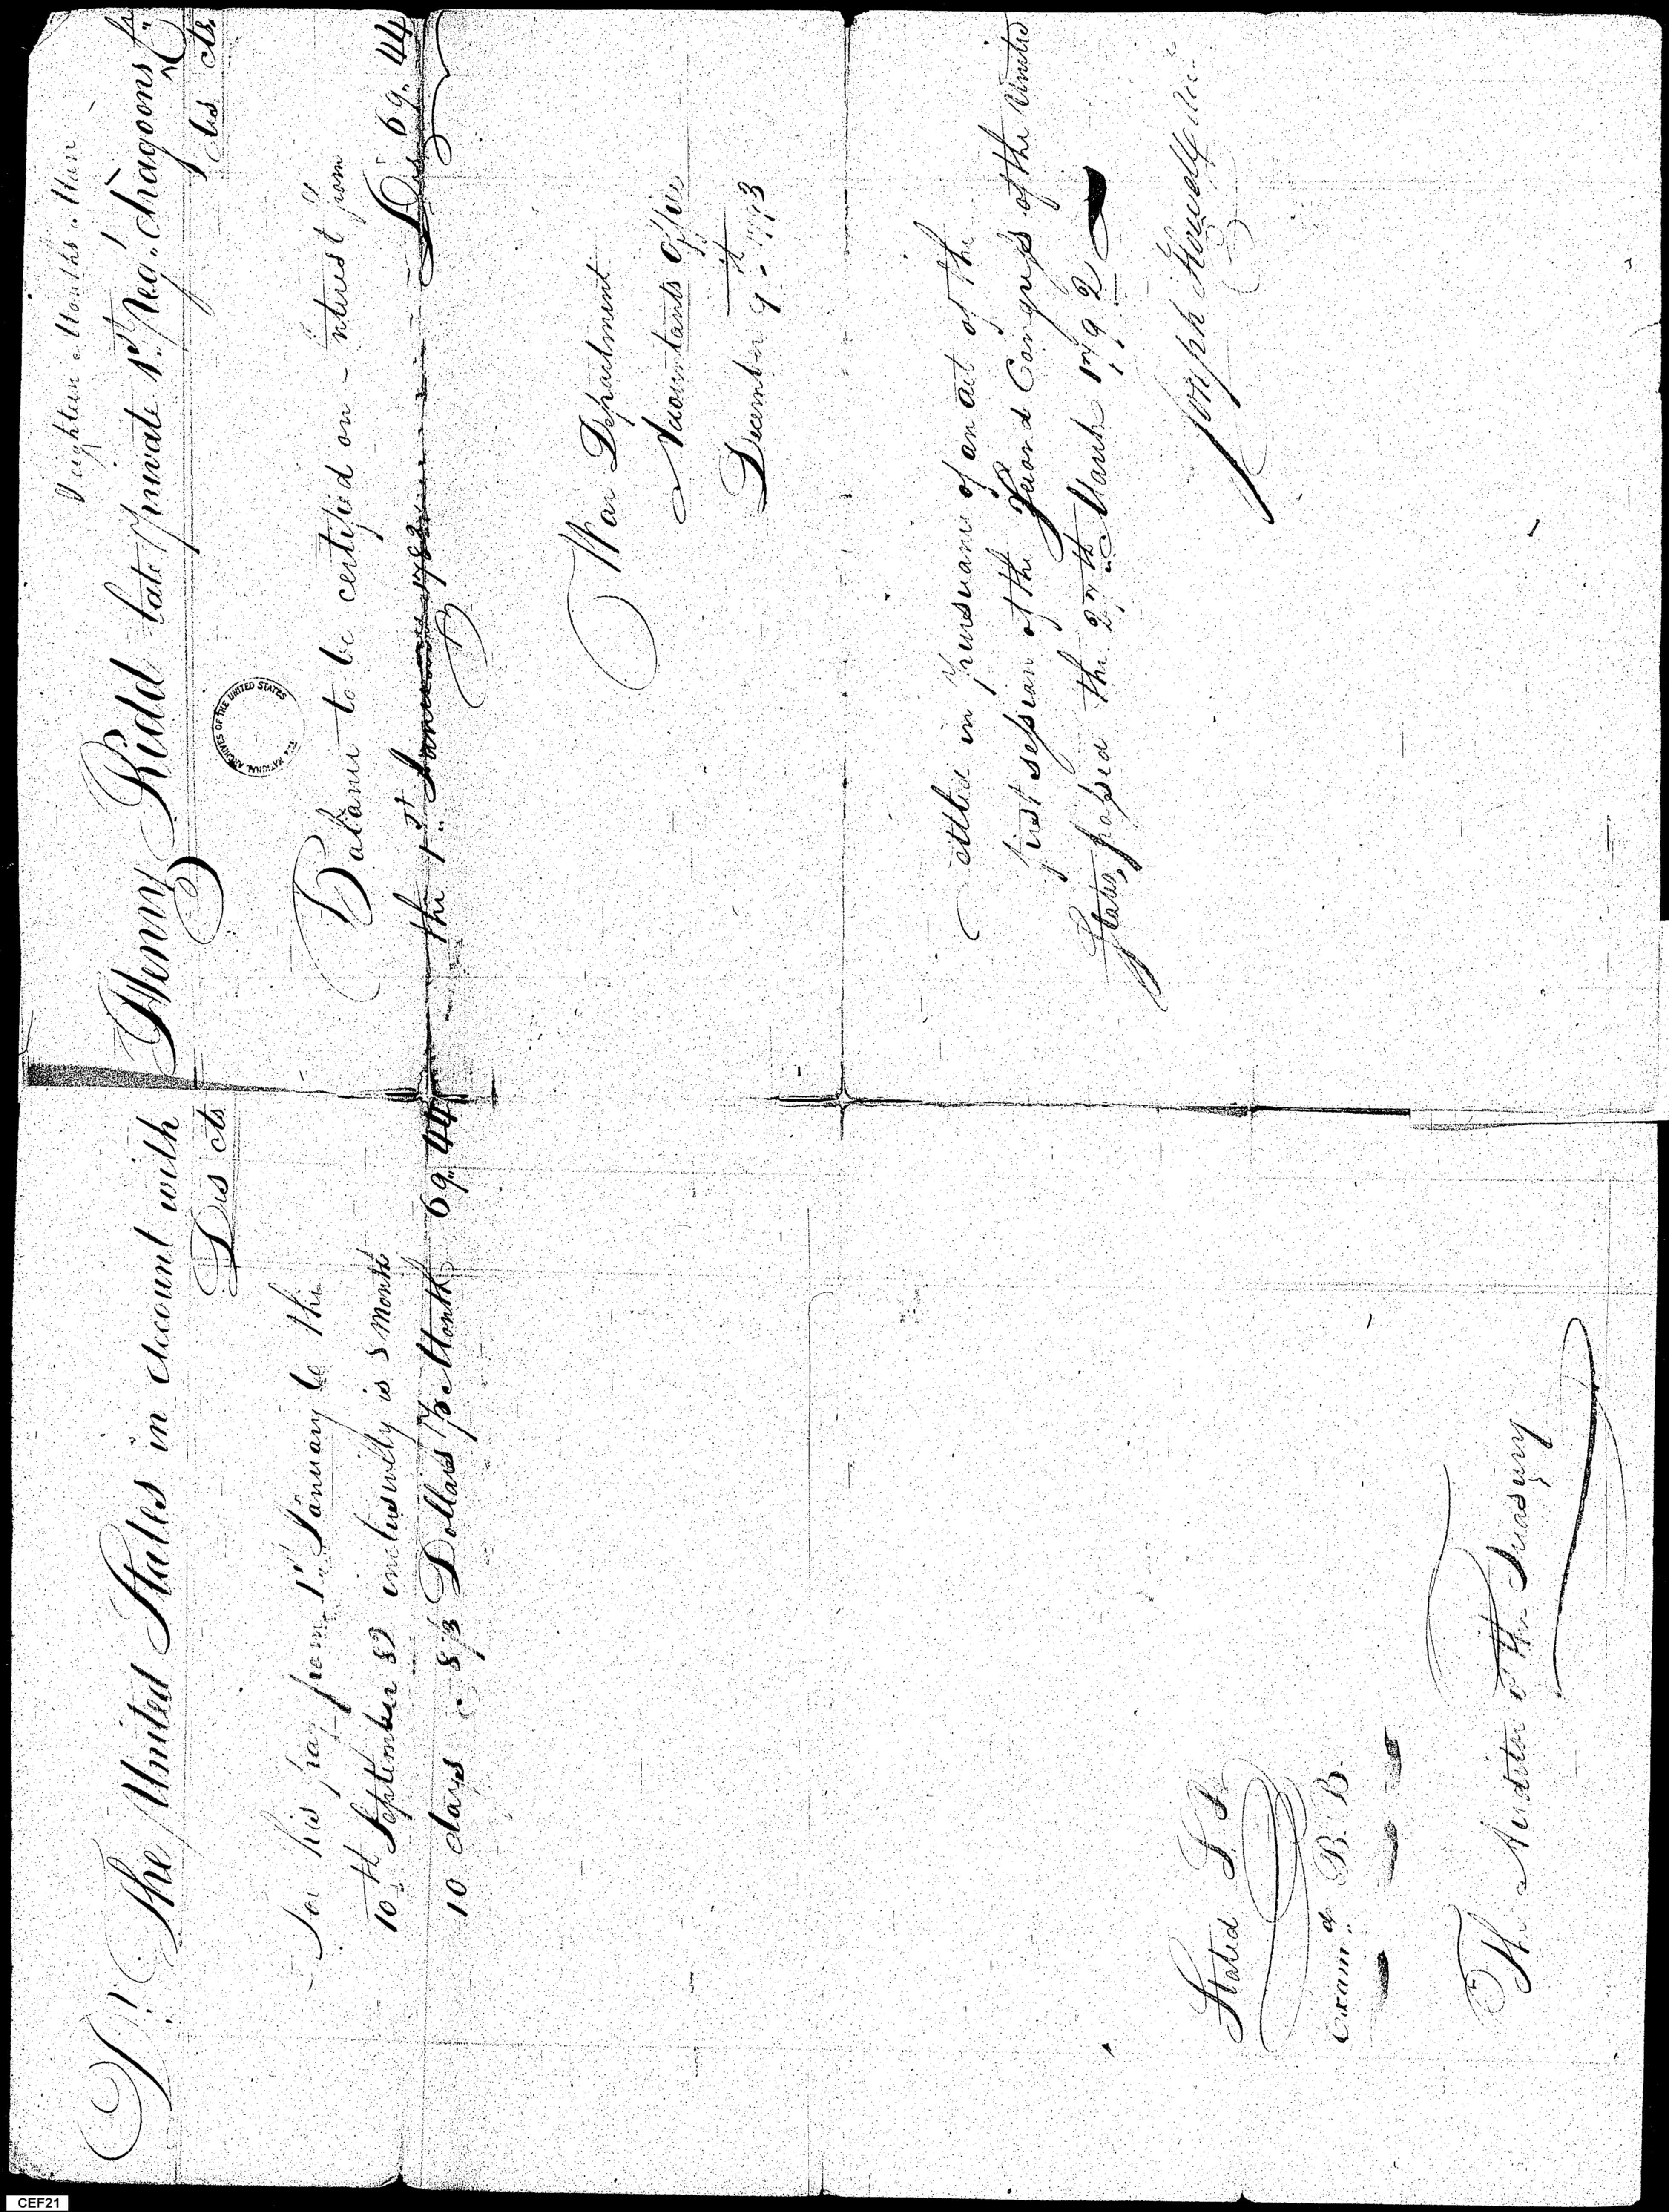 Eighteen Months Man
Dr. The United States in Account with Henry Kidd late private 1st Reg. dragoons Cr.
Ds cts
Ds cts
For his pay from 1st January to the
10th September 82 inclusively is 8 Month
10 days @ 8⅓ Dollars pr Month 69.44
Balance to be certified on Interest from
the 1st January 1782 Drs 69.44
THE NATIONAL ARCHIVES OF THE UNITED STATES
War Department
Accountants Office
December 9th 1793
Settled in pursuance of an act of the
first session of the Second Congress of the United
States, passed the 27th March 1792
Joseph Howell
Stated
Exam.d B. B.
The Auditor of the Treasury
CEF21